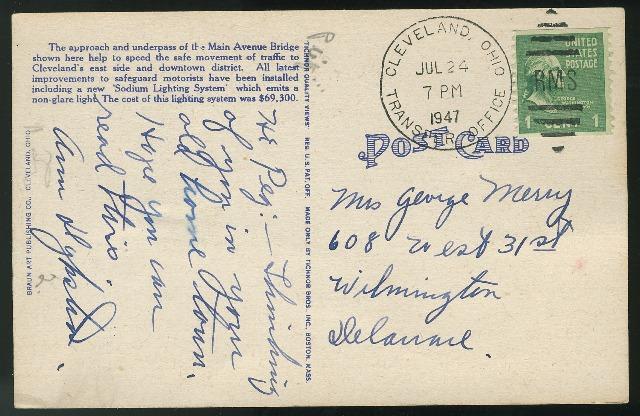 The approach and underpass of the Main Avenue Bridge
shown here help to speed the safe movement of traffic to
Cleveland's east side and downtown district. All latest
improvements to safeguard motorists have been installed
including a new 'Sodium Lighting System' which emits a
non-glare light. The cost of this lighting system was $69,300.
CLEVELAND, OHIO
JUL 24
7 PM
1947
TRANSFER OFFICE
UNITED
STATES
POSTAGE
RMS
1 CENT 1
POST CARD
Hi Peg: – Thinking
of you in your
old home town.
Hope you can
read this.
Ann
Mrs George Merry
608 West 31st
Wilmington
Delaware.
TICHNOR QUALITY VIEWS REG. U.S. PAT. OFF. MADE ONLY BY TICHNOR BROS. INC., BOSTON, MASS.
BRAUN ART PUBLISHING CO., CLEVELAND, OHIO